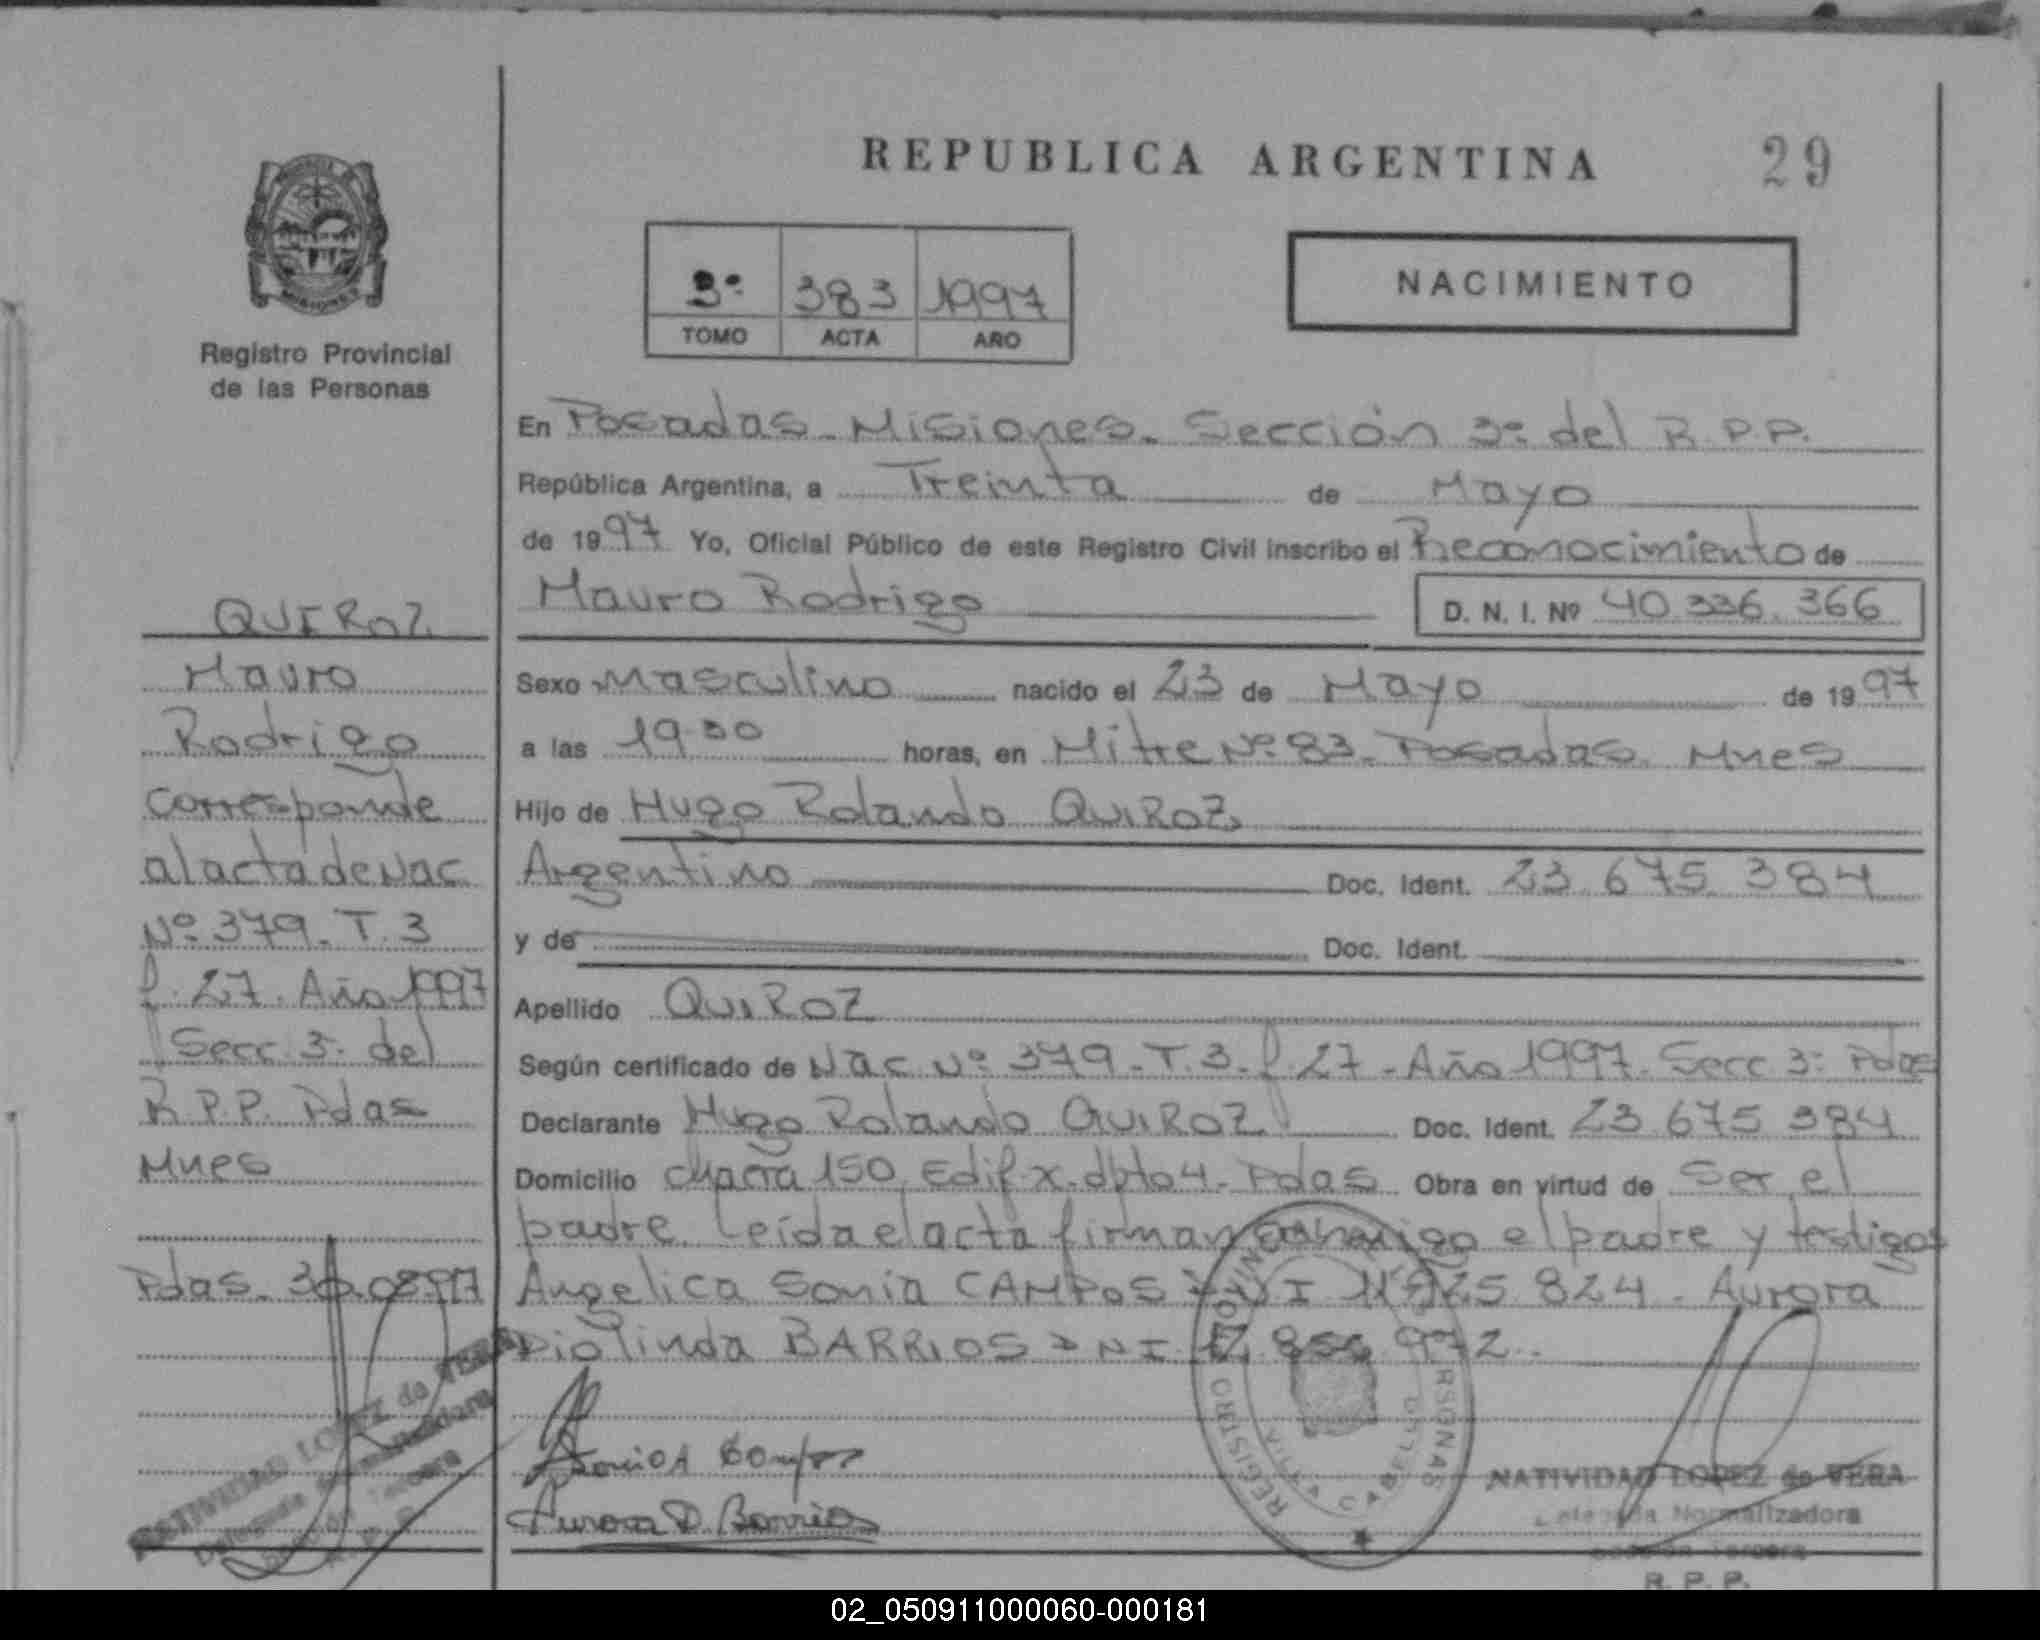 REPUBLICA ARGENTINA
29
3º 383 1997
TOMO ACTA AÑO
NACIMIENTO
MISIONES
Registro Provincial
de las Personas
En Posadas - Misiones. Sección 3º del R.P.P.
República Argentina, a Treinta de Mayo
de 1997 Yo, Oficial Público de este Registro Civil inscribo el Reconocimiento de
Mauro Rodrigo D. N. I. Nº 40.336.366
Sexo Masculino nacido el 23 de Mayo de 1997
a las 19.30 horas, en Mitre Nº 83 - Posadas. Mnes
Hijo de Hugo Rolando QUIROZ
Argentino Doc. Ident. 23.675.384
y de Doc. Ident.
Apellido QUIROZ
Según certificado de Nac. Nº 379 - T. 3 - f. 27 - Año 1997. Secc 3º Pdas
Declarante Hugo Rolando QUIROZ Doc. Ident. 23.675.384
Domicilio chacra 150 Edif x. dpto 4 - Pdas Obra en virtud de Ser el
padre. Leída el acta firman conmigo el padre y testigos
Angelica Sonia CAMPOS DNI 824 - Aurora
Diolinda BARRIOS DNI 972.
Sonia A Campos
Aurora D. Barrios
REGISTRO PERSONAS
VILLA CABELLO
NATIVIDAD LOPEZ de VERA
Delegada Normalizadora
Sección Tercera
R. P. P.
QUIROZ
Mauro
Rodrigo
corresponde
al acta de Nac
Nº 379 - T. 3
f. 27. Año 1997
Secc. 3º del
R.P.P. Pdas
Mnes
Pdas. 30.0597
NATIVIDAD LOPEZ de VERA
Delegada Normalizadora
Sección Tercera
R. P. P.
02_050911000060-000181